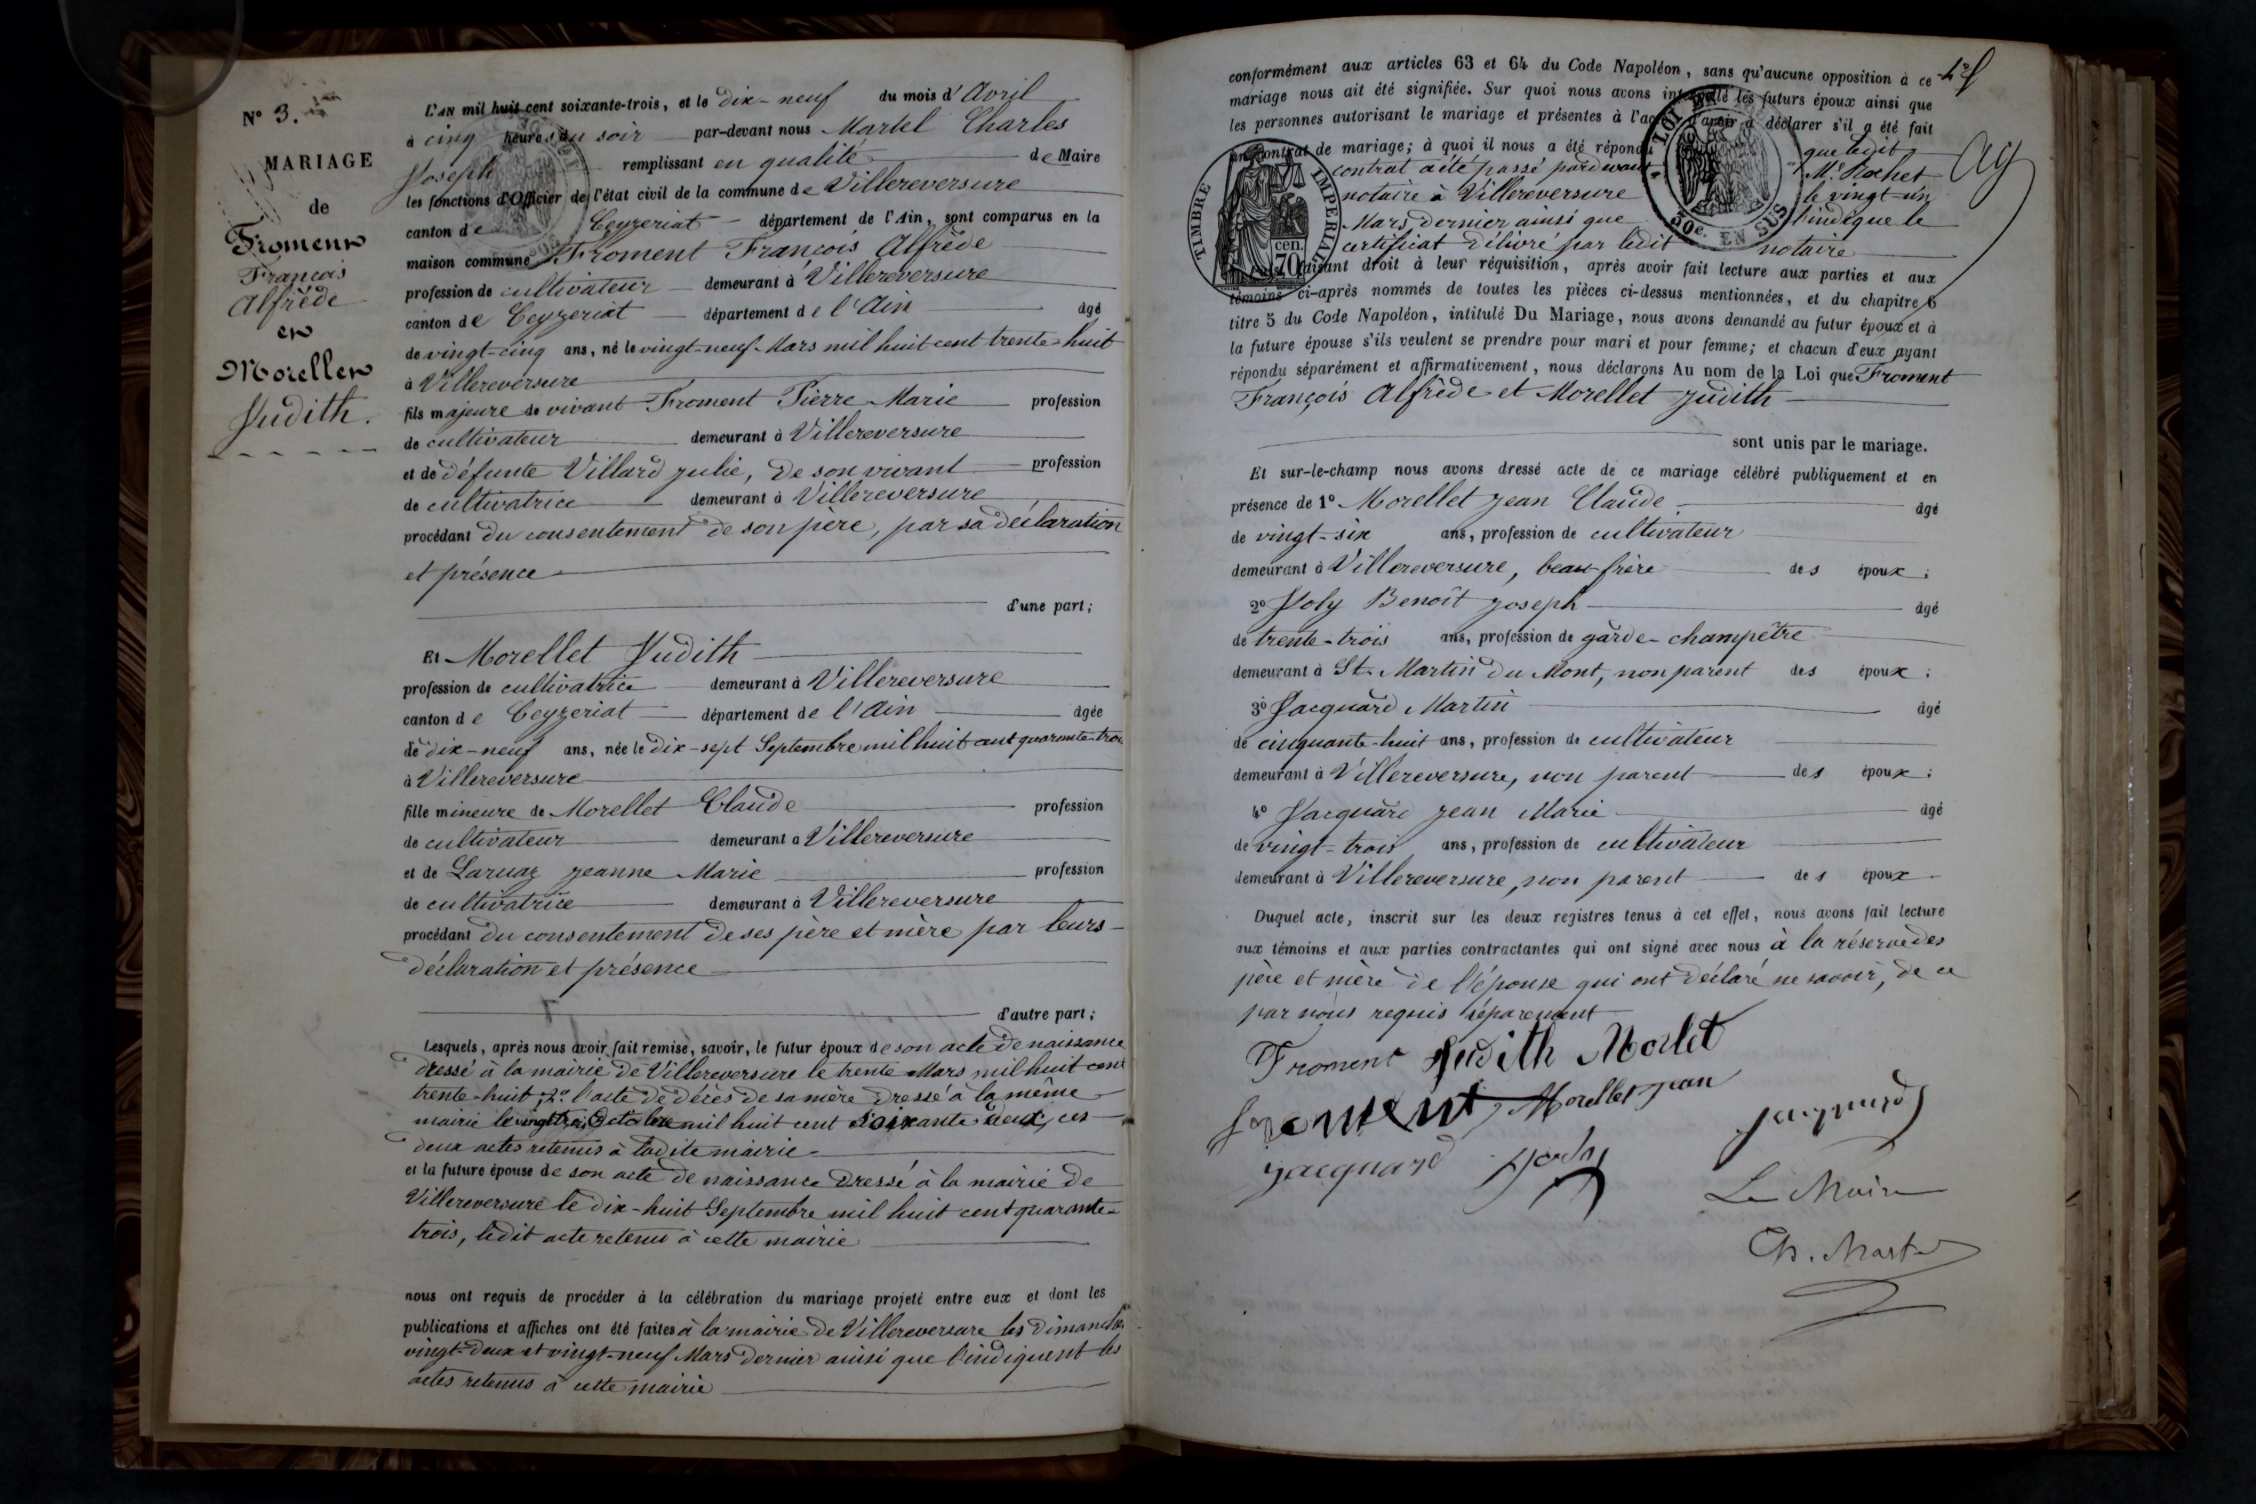 N° 3.
MARIAGE
de
Froment
François
Alfrède
et
Morellet
Judith.
L'AN mil huit cent soixante-trois, et le dix-neuf du mois d'Avril
à cinq heures du soir par-devant nous Martel Charles
Joseph remplissant en qualité de Maire
les fonctions d'Officier de l'état civil de la commune de Villereversure
canton de Ceyzeriat département de l'Ain, sont comparus en la
maison commune Froment François Alfrède
profession de cultivateur demeurant à Villereversure
canton de Ceyzeriat département de l'Ain âgé
de vingt-cinq ans, né le vingt-neuf Mars mil huit cent trente-huit
à Villereversure
fils majeure de vivant Froment Pierre Marie profession
de cultivateur demeurant à Villereversure
et de défunte Villard Julie, de son vivant profession
de cultivatrice demeurant à Villereversure
procédant du consentement de son père, par sa déclaration
et présence
d'une part;
Et Morellet Judith
profession de cultivatrice demeurant à Villereversure
canton de Ceyzeriat département de l'Ain âgée
de dix-neuf ans, née le dix-sept Septembre mil huit cent quarante-trois
à Villereversure
fille mineure de Morellet Claude profession
de cultivateur demeurant à Villereversure
et de Laruaz Jeanne Marie profession
de cultivatrice demeurant à Villereversure
procédant du consentement de ses père et mère par leurs
déclaration et présence
d'autre part;
Lesquels, après nous avoir fait remise, savoir, le futur époux de son acte de naissance
dressé à la mairie de Villereversure le trente Mars mil huit cent
trente-huit, 2° l'acte de décès de sa mère dressé à la même
mairie le vingt trois Octobre mil huit cent soixante deux, ces
deux actes retenus à ladite mairie
et la future épouse de son acte de naissance dressé à la mairie de
Villereversure le dix-huit Septembre mil huit cent quarante-
trois, ledit acte retenu à cette mairie
nous ont requis de procéder à la célébration du mariage projeté entre eux et dont les
publications et affiches ont été faites à la mairie de Villereversure les dimanches
vingt-deux et vingt-neuf Mars dernier ainsi que l'indiquent les
actes retenus à cette mairie
conformément aux articles 63 et 64 du Code Napoléon, sans qu'aucune opposition à ce
mariage nous ait été signifiée. Sur quoi nous avons interpellé les futurs époux ainsi que
les personnes autorisant le mariage et présentes à l'acte d'avoir à déclarer s'il a été fait
un contrat de mariage; à quoi il nous a été répondu que ledit
contrat a été passé pardevant Me. Rochet
notaire à Villereversure le vingt-un
Mars dernier ainsi que l'indique le
certificat délivré par ledit notaire
TIMBRE IMPERIAL
70 cen.
LOI DE
50c. EN SUS
faisant droit à leur réquisition, après avoir fait lecture aux parties et aux
témoins ci-après nommés de toutes les pièces ci-dessus mentionnées, et du chapitre 6
titre 5 du Code Napoléon, intitulé Du Mariage, nous avons demandé au futur époux et à
la future épouse s'ils veulent se prendre pour mari et pour femme; et chacun d'eux ayant
répondu séparément et affirmativement, nous déclarons Au nom de la Loi que Froment
François Alfrède et Morellet Judith
sont unis par le mariage.
Et sur-le-champ nous avons dressé acte de ce mariage célébré publiquement et en
présence de 1° Morellet Jean Claude âgé
de vingt-six ans, profession de cultivateur
demeurant à Villereversure, beau frère des époux;
2° Joly Benoît Joseph âgé
de trente-trois ans, profession de garde-champêtre
demeurant à St. Martin du Mont, non parent des époux;
3° Jacquard Martin âgé
de cinquante-huit ans, profession de cultivateur
demeurant à Villereversure, non parent des époux;
4° Jacquard Jean Marie âgé
de vingt-trois ans, profession de cultivateur
demeurant à Villereversure, non parent des époux
Duquel acte, inscrit sur les deux registres tenus à cet effet, nous avons fait lecture
aux témoins et aux parties contractantes qui ont signé avec nous à la réserve des
père et mère de l'épouse qui ont déclaré ne savoir, de ce
par nous requis séparément
Froment Judith Morlet
froment Morellet jean jacquard
jacquard Joly
Le Maire
Ch. Martel